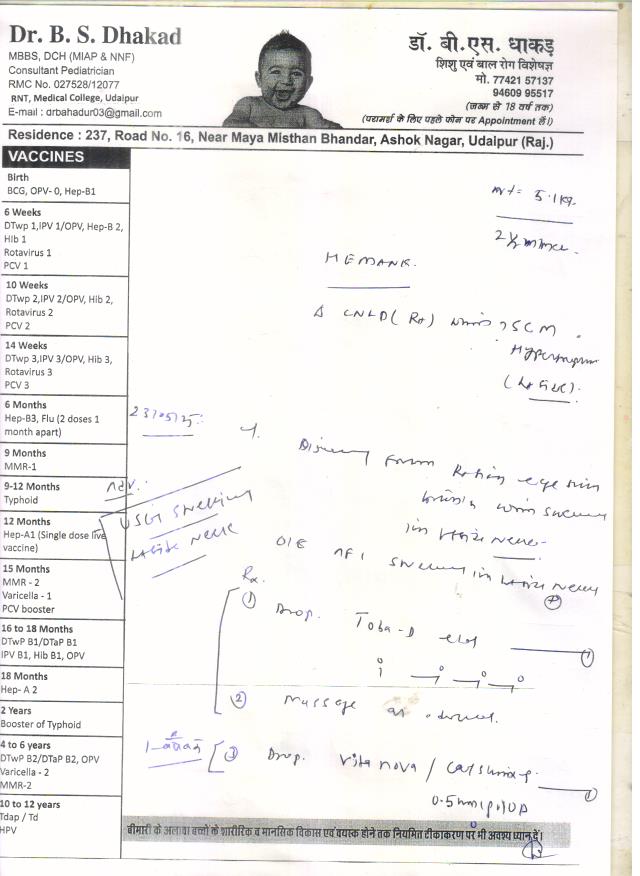 Dr. B. S. Dhakad
MBBS, DCH (MIAP & NNF)
Consultant Pediatrician
RMC No. 027528/12077
RNT, Medical College, Udaipur
E-mail : drbahadur03@gmail.com
डॉ. बी.एस. धाकड़
शिशु एवं बाल रोग विशेषज्ञ
मो. 77421 57137
94609 95517
(जन्म से 18 वर्ष तक)
(परामर्श के लिए पहले फोन पर Appointment लें।)
Residence : 237, Road No. 16, Near Maya Misthan Bhandar, Ashok Nagar, Udaipur (Raj.)
VACCINES
Birth
BCG, OPV- 0, Hep-B1
6 Weeks
DTwp 1,IPV 1/OPV, Hep-B 2,
HIb 1
Rotavirus 1
PCV 1
10 Weeks
DTwp 2,IPV 2/OPV, Hib 2,
Rotavirus 2
PCV 2
14 Weeks
DTwp 3,IPV 3/OPV, Hib 3,
Rotavirus 3
PCV 3
6 Months
Hep-B3, Flu (2 doses 1
month apart)
9 Months
MMR-1
9-12 Months
Typhoid
12 Months
Hep-A1 (Single dose live
vaccine)
15 Months
MMR - 2
Varicella - 1
PCV booster
16 to 18 Months
DTwP B1/DTaP B1
IPV B1, Hib B1, OPV
18 Months
Hep- A 2
2 Years
Booster of Typhoid
4 to 6 years
DTwP B2/DTaP B2, OPV
Varicella - 2
MMR-2
10 to 12 years
Tdap / Td
HPV
wt = 5.1 kg.
HEMANK.
Δ CNLD (Rt) SCM
23/05/25
Adv.
USG swelling
neck
from eye
in neck
O/E swelling in
Rx
① Drop. Toba-D
② Massage as advised.
③ Drop. Vitanova /
0.5ml
बीमारी के अलावा बच्चों के शारीरिक व मानसिक विकास एवं वयस्क होने तक नियमित टीकाकरण पर भी अवश्य ध्यान दें।